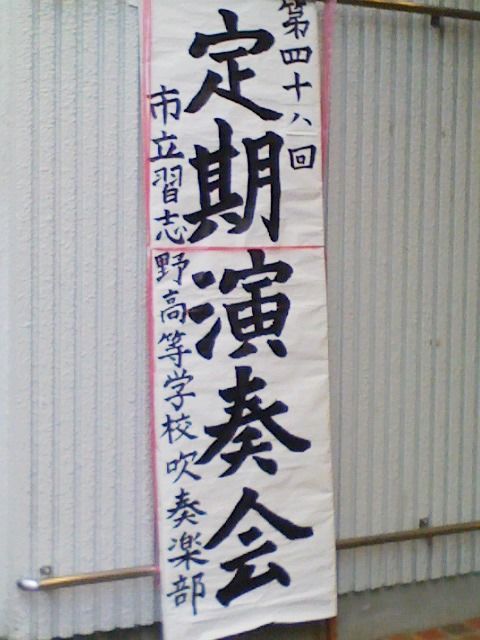 第四十八回
定期演奏会
市立習志野高等学校吹奏楽部